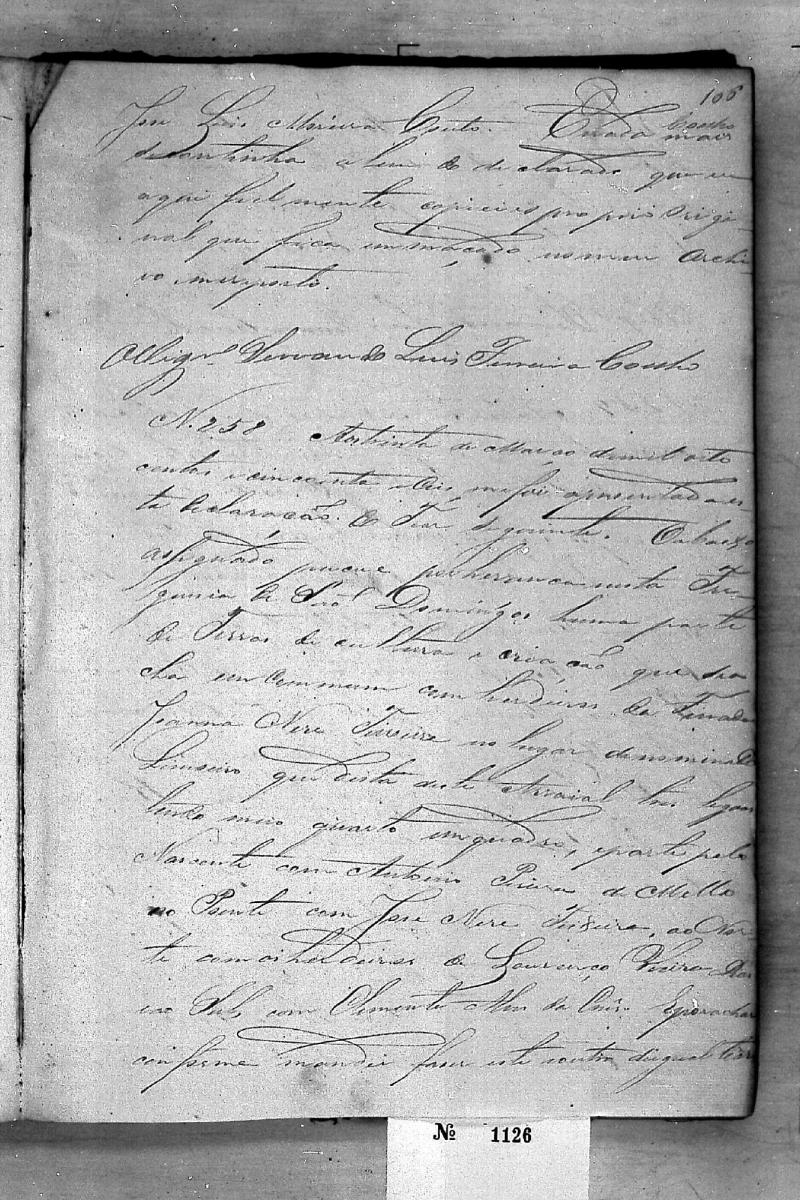 106
José Luis Moreira Couto. E nada Coucho mais
se continha alem do declarado que eu
aqui fielmente copiei es pro prio Origi-
nal que fica em maçado no meu Archi
vo
O Vigrº Venando Luis Ferreira Coucho
N. 258 Aos trinta de Março de mil oito
centos e cincoenta e seis me foi apresentada es-
ta declaração do Teor seguinte. O abaixo
assignado possue por herança nesta Fre-
guesia de São Domingos huma parte
de Terras de cultura e criação que se a
cha em Commum com herdeiros da Finada
Joanna Nere Teixeira no lugar denominado
Limoeiro que dista deste Arraial tres legoas
tendo meio quarto em quadro, e parte pelo
Nascente com Antonio Pereira de Mello
ao Poente com José Nere Teixeira, ao Nor-
te com os herdeiros de Lourenço Vieira
e ao Sul com Clemente da E por achar
conforme mandei faser este e outro de igual Teor
№ 1126